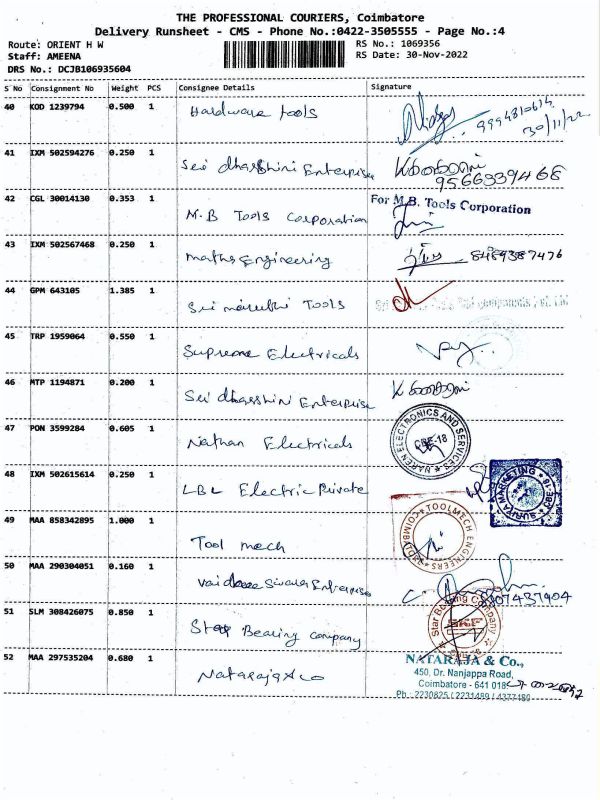 THE PROFESSIONAL COURIERS, Coimbatore
Delivery Runsheet - CMS - Phone No.:0422-3505555 - Page No.:4
Route: ORIENT H W
RS No.: 1069356
Staff: AMEENA
RS Date: 30-Nov-2022
DRS No.: DCJB106935604
S No Consignment No Weight PCS Consignee Details Signature
40 KOD 1239794 0.500 1 Hardware tools
9994810614
30/11/22
41 IXM 502594276 0.250 1 Sri dharshini Enterprise
9566939468
42 CGL 30014130 0.353 1 M.B Tools Corporation
For M.B. Tools Corporation
43 IXM 502567468 0.250 1 maths Engineering 8489387476
44 GPM 643105 1.385 1 Sri maruthi Tools
45 TRP 1959064 0.550 1 Supreme Electricals
46 MTP 1194871 0.200 1 Sri dharshini Enterprise
47 PON 3599284 0.605 1 Nathan Electricals
NAREN ELECTRONICS AND SERVICES
CBE-18
48 IXM 502615614 0.250 1 LBL Electric Private
SURYA MARKETING
CBE-18
49 MAA 858342895 1.000 1 Tool mech
TOOLMECH ENGINEERS
COIMBATORE
50 MAA 290304051 0.160 1 Enterprise
51 SLM 308426075 0.850 1 Star Bearing company
Star Bearing Company
SKF
52 MAA 297535204 0.680 1 Nataraja & co
NATARAJA & Co.,
450, Dr. Nanjappa Road,
Coimbatore - 641 018
Ph : 2230825 / 2231489 / 4377180